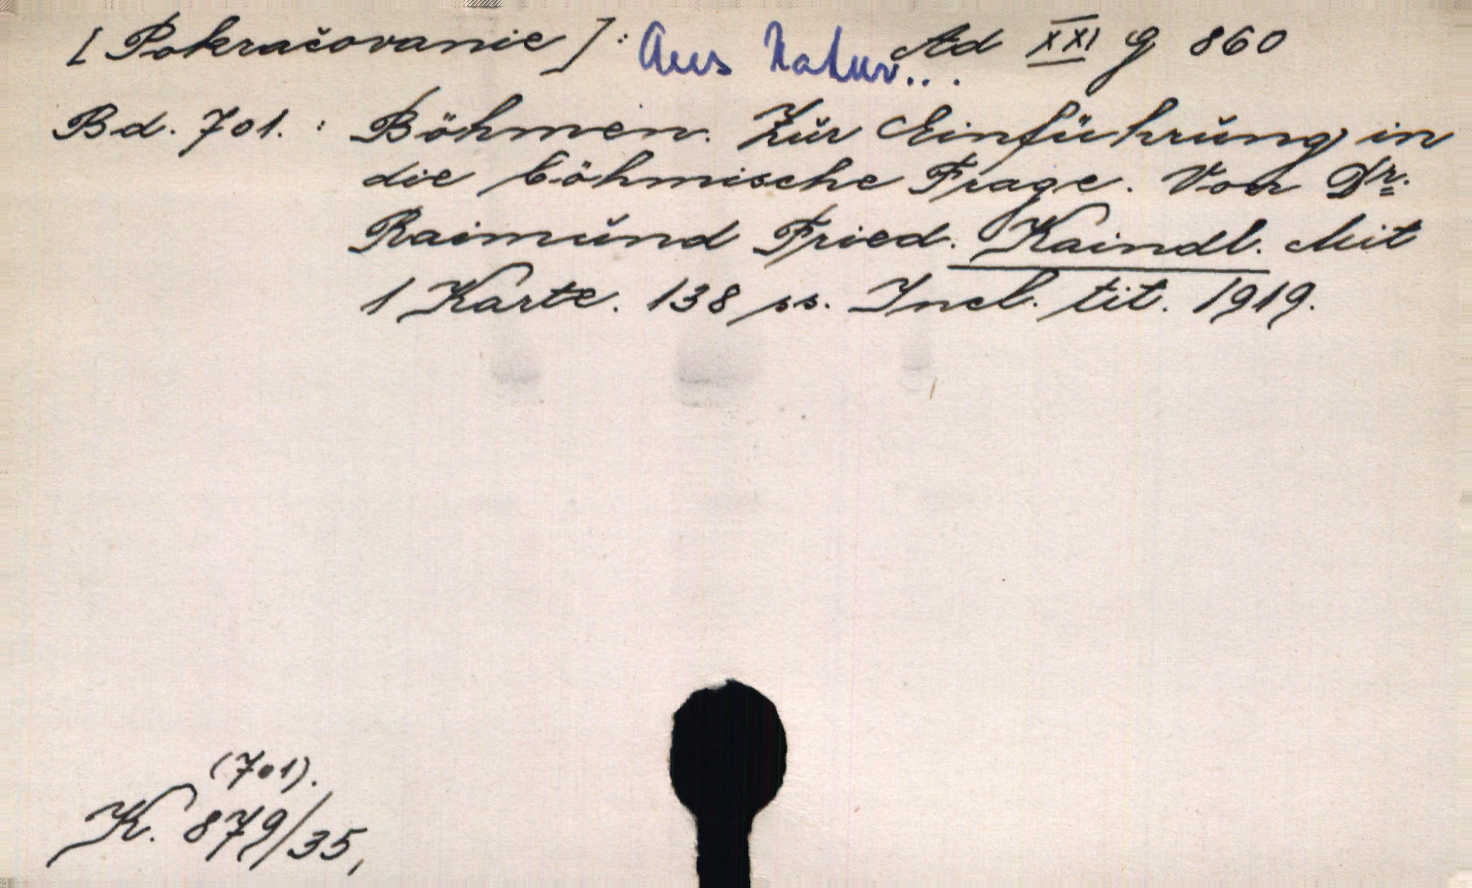 [Pokračovanie]: Aus Natur... Ad XXI G 860
Bd. 701. : Böhmen. Zŭr Einführŭng in
die böhmische Frage. Von Dr.
Raimŭnd Fried. Kaindl. Mit
1 Karte. 138 ss. Incl. tit. 1919.
(701).
K. 879/35,